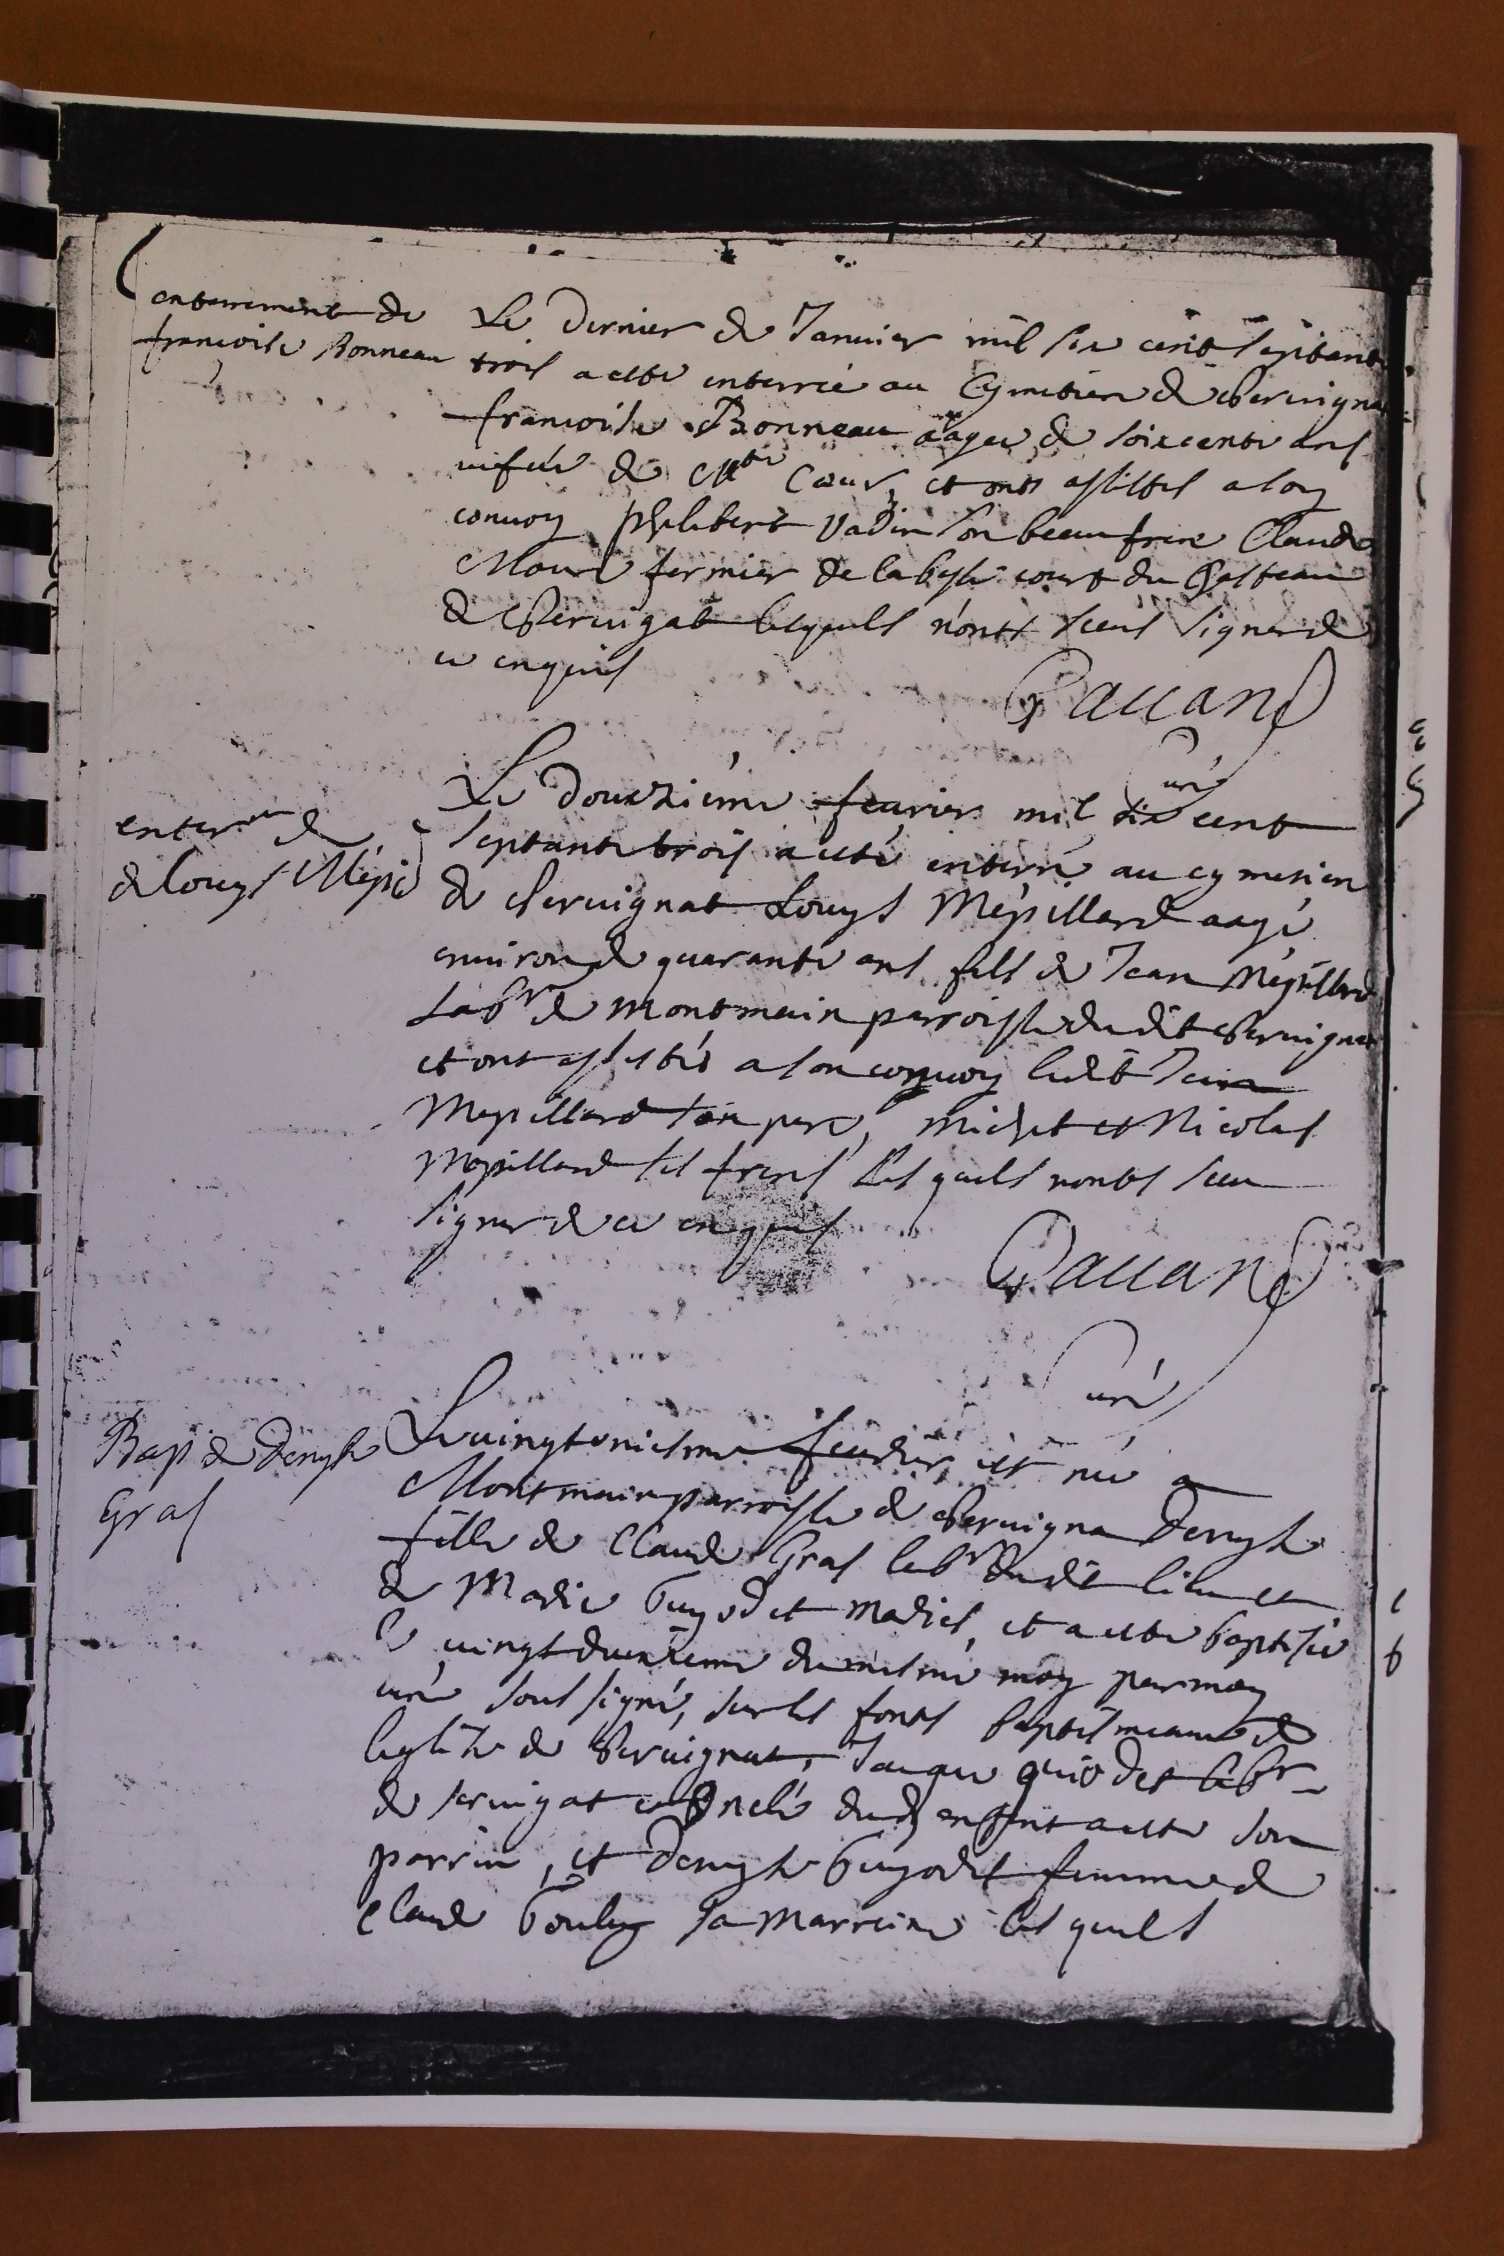 enterrement de
françoise Bonneau
Le dernier de Januier mil six cent septante
trois a esté enterrée au Cymetiere de Seruigna
françoise Bonneau aagée de soixcente ans
uefue de Cœur, et onts assistes a son
conuoy Philibert Vadin son beau frere Claude
fermier de la basse court du Chasteau
de Seruigat lesquels n'onts sceus signer de
ce enquis
Paccand
curé
enterr de
de Louys Mépi
Le douxzième feurier mil six cent
septante trois a esté enterré au cymetiere
de Seruignat Louys Mépillard aagé
enuiron de quarante ans fils de Jean Mépillard
Labr de montmain parroisse dudit Seruignat
et ont assistés a son conuoy ledit Jean
Mepillard son pere, michel et Nicolas
Mepillard ses freres lesquels nonts sceu
signer de ce enquis
Paccand
curé
Bap de Denyse
Gras
Le uingtoniesme feurier est née a
Montmain parroisse de Seruigna Denyse
fille de Claude Gras labr dudit lieu et
de Marie Guyodet mariés, et a esté baptisée
le uingt deuxieme du mesme moy par moy
curé soussigné, sur les fonts baptismeaux de
leglise de Seruignat, Jaque guiodet labr
de seruigat et oncle dud enfent a esté son
parrin, et Denyse Guyodet femme de
Claude Gouly sa marreine lesquels